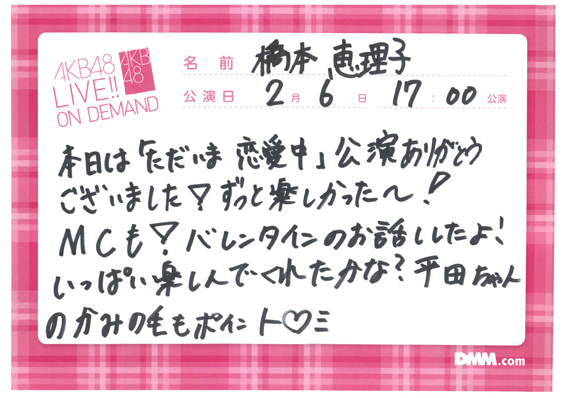 AKB48
LIVE!!
ON DEMAND
AKB
48
名前 橋本 恵理子
公演日 2月 6日 17:00 公演
本日は「ただいま 恋愛中」公演ありがとう
ございました！ずっと楽しかった〜！
MCも！バレンタインのお話ししたよ！
いっぱい楽しんでくれたかな？平田ちゃん
のかみの毛もポイント♡ミ
DMM.com